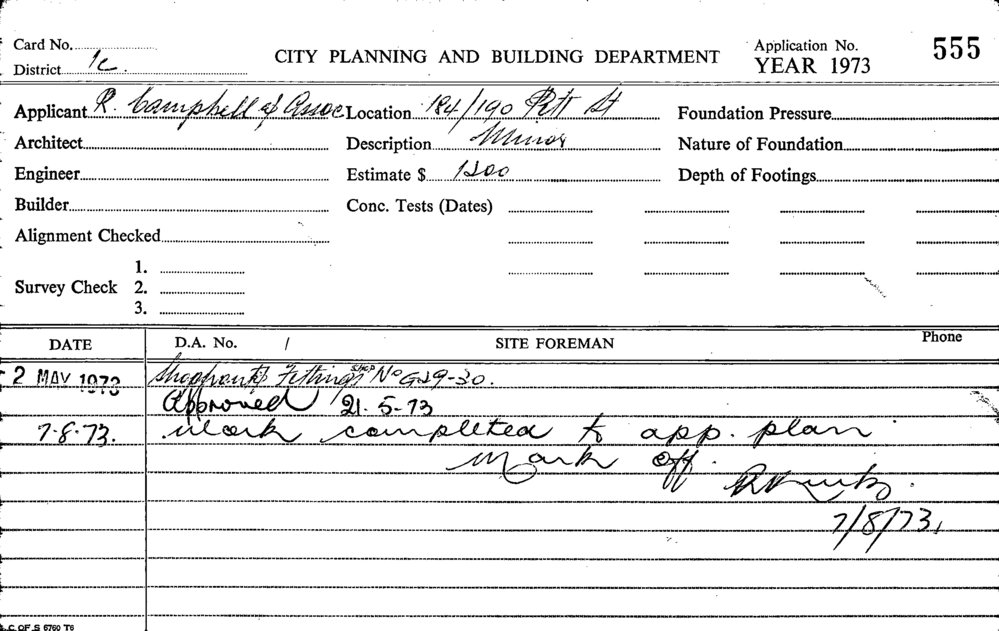 Card No.
District 1c.
CITY PLANNING AND BUILDING DEPARTMENT
Application No.
YEAR 1973
555
Applicant R. Campbell & Assoc
Location 184/190 Pitt St
Foundation Pressure
Architect
Description Minor
Nature of Foundation
Engineer
Estimate $ 1200
Depth of Footings
Builder
Conc. Tests (Dates)
Alignment Checked
Survey Check
1.
2.
3.
DATE
D.A. No. /
SITE FOREMAN
Phone
2 MAY 1973
Shopfront & Fittings SHOP No G29-30.
Approved 21.5.73
7.8.73. Work completed to app. plan
Mark off.
7/8/73.
C OF S 6760 T6